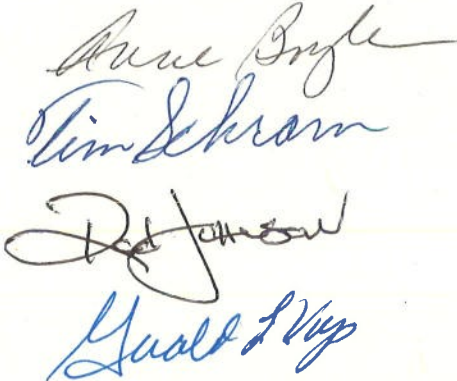 Anne Boyle
Tim Schram
Rod Johnson
Gerald L Vap